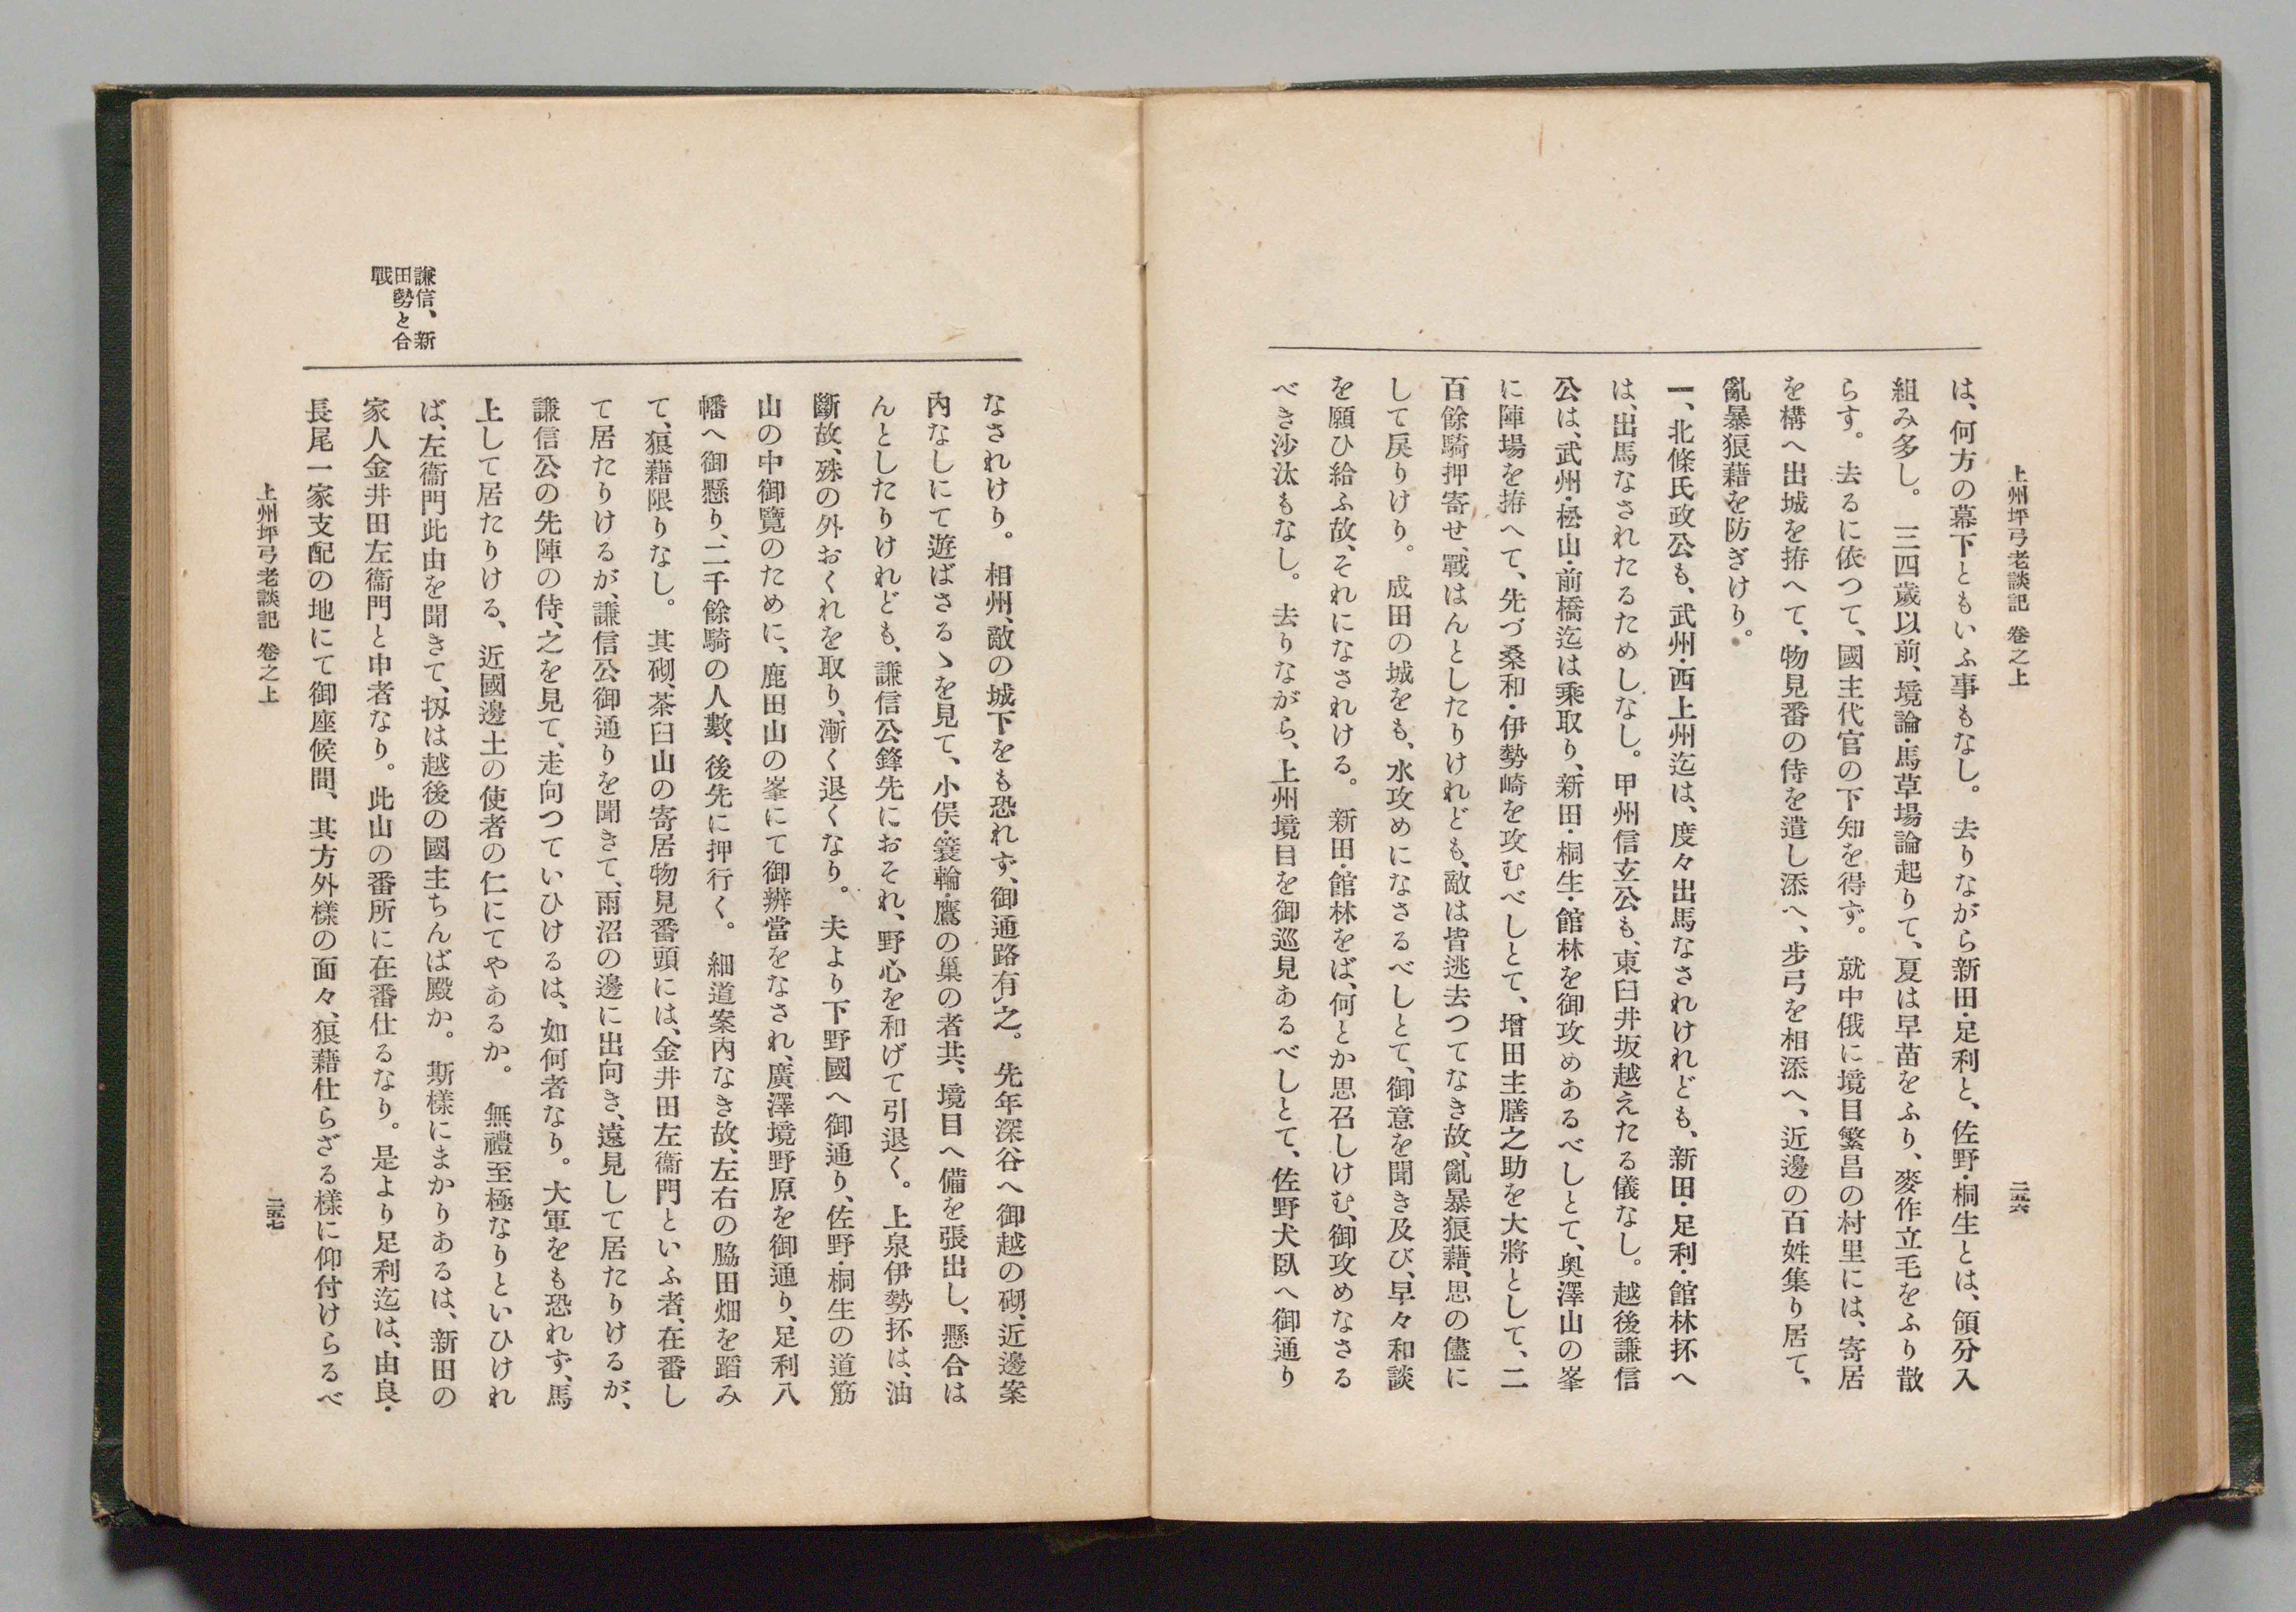 上州坪弓老談記　卷之上
二五六
は、何方の幕下ともいふ事もなし。去りながら新田・足利と、佐野・桐生とは、領分入
組み多し。三四歲以前、境論・馬草場論起りて、夏は早苗をふり、麥作立毛をふり散
らす。去るに依つて、國主代官の下知を得ず。就中俄に境目繁昌の村里には、寄居
を構へ出城を拵へて、物見番の侍を遣し添へ、步弓を相添へ、近邊の百姓集り居て、
亂暴狼藉を防ぎけり。
一、北條氏政公も、武州・西上州迄は、度々出馬なされけれども、新田・足利・館林抔へ
は、出馬なされたるためしなし。甲州信玄公も、東臼井坂越えたる儀なし。越後謙信
公は、武州・松山・前橋迄は乘取り、新田・桐生・館林を御攻めあるべしとて、奧澤山の峯
に陣場を拵へて、先づ桑和・伊勢崎を攻むべしとて、增田主膳之助を大將として、二
百餘騎押寄せ、戰はんとしたりけれども、敵は皆逃去つてなき故、亂暴狼藉、思の儘に
して戾りけり。成田の城をも、水攻めになさるべしとて、御意を聞き及び、早々和談
を願ひ給ふ故、それになされける。新田・館林をば、何とか思召しけむ、御攻めなさる
べき沙汰もなし。去りながら、上州境目を御巡見あるべしとて、佐野犬臥へ御通り
なされけり。相州、敵の城下をも恐れず、御通路有之。先年深谷へ御越の砌、近邊案
內なしにて遊ばさるゝを見て、小俣・簑輪・鷹の巢の者共、境目へ備を張出し、懸合は
んとしたりけれども、謙信公鋒先におそれ、野心を和げて引退く。上泉伊勢抔は、油
斷故、殊の外おくれを取り、漸く退くなり。夫より下野國へ御通り、佐野・桐生の道筋
山の中御覽のために、鹿田山の峯にて御辨當をなされ、廣澤境野原を御通り、足利八
幡へ御懸り、二千餘騎の人數、後先に押行く。細道案內なき故、左右の脇田畑を蹈み
て、狼藉限りなし。其砌、茶臼山の寄居物見番頭には、金井田左衞門といふ者、在番し
て居たりけるが、謙信公御通りを聞きて、雨沼の邊に出向き、遠見して居たりけるが、
謙信公の先陣の侍、之を見て、走向つていひけるは、如何者なり。大軍をも恐れず、馬
上して居たりける、近國邊土の使者の仁にてやあるか。無禮至極なりといひけれ
ば、左衞門此由を聞きて、扨は越後の國主ちんば殿か。斯樣にまかりあるは、新田の
家人金井田左衞門と申者なり。此山の番所に在番仕るなり。是より足利迄は、由良・
長尾一家支配の地にて御座候間、其方外樣の面々、狼藉仕らざる樣に仰付けらるべ
謙信、新
田勢と合
戰
上州坪弓老談記　卷之上
二五七